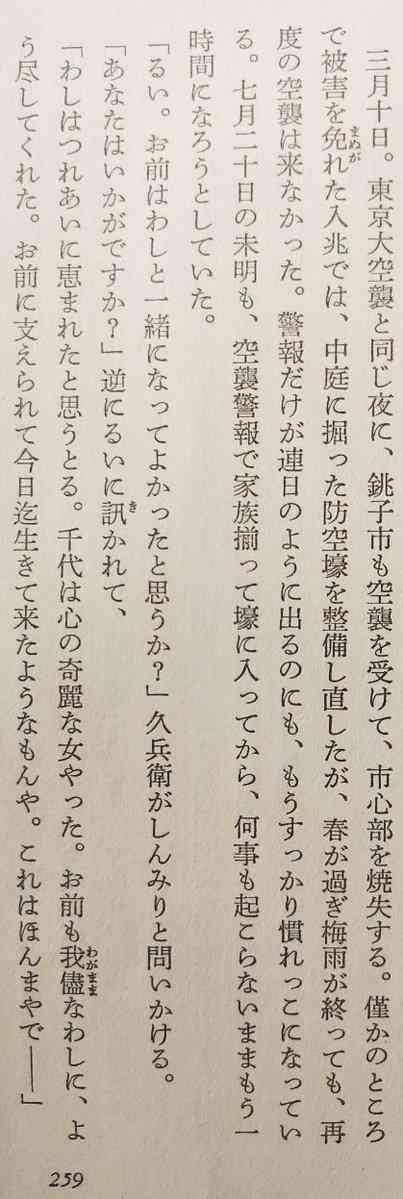 三月十日。東京大空襲と同じ夜に、銚子市も空襲を受けて、市心部を焼失する。僅かのところ
で被害を免れた入兆では、中庭に掘った防空壕を整備し直したが、春が過ぎ梅雨が終っても、再
度の空襲は来なかった。警報だけが連日のように出るのにも、もうすっかり慣れっこになってい
る。七月二十日の未明も、空襲警報で家族揃って壕に入ってから、何事も起こらないままもう一
時間になろうとしていた。
「るい。お前はわしと一緒になってよかったと思うか?」久兵衛がしんみりと問いかける。
「あなたはいかがですか?」逆にるいに訊かれて、
「わしはつれあいに恵まれたと思うとる。千代は心の奇麗な女やった。お前も我儘なわしに、よ
う尽してくれた。お前に支えられて今日迄生きて来たようなもんや。これはほんまやで——」
259